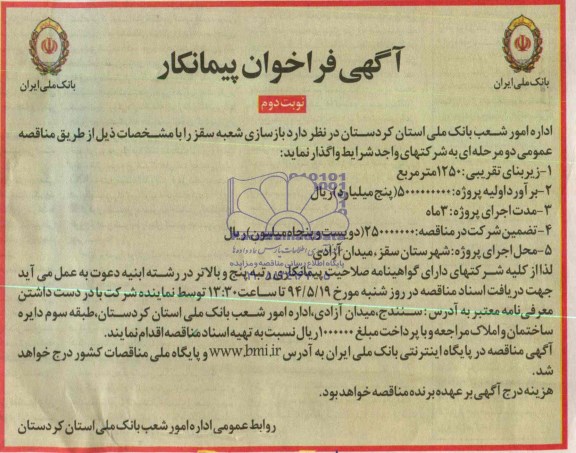 آگهی فراخوان پیمانکار
بانک ملی ایران
بانک ملی ایران
نوبت دوم
اداره امور شعب بانک ملی استان کردستان در نظر دارد بازسازی شعبه سقز را با مشخصات ذیل از طریق مناقصه
عمومی دو مرحله ای به شرکتهای واجد شرایط واگذار نماید:
۱-زیربنای تقریبی: ۱۲۵۰متر مربع
۲-برآورد اولیه پروژه: ۵۰۰۰۰۰۰۰۰۰(پنج میلیارد) ریال
۳-مدت اجرای پروژه: ۳ماه
۴-تضمین شرکت در مناقصه: ۲۵۰۰۰۰۰۰۰(دویست و پنجاه میلیون) ریال
۵-محل اجرای پروژه: شهرستان سقز، میدان آزادی
لذا از کلیه شرکتهای دارای گواهینامه صلاحیت پیمانکاری رتبه پنج و بالاتر در رشته ابنیه دعوت به عمل می آید
جهت دریافت اسناد مناقصه در روز شنبه مورخ ۹۴/۵/۱۹ تا ساعت ۱۳:۳۰ توسط نماینده شرکت با در دست داشتن
معرفی نامه معتبر به آدرس: سنندج، میدان آزادی، اداره امور شعب بانک ملی استان کردستان، طبقه سوم دایره
ساختمان و املاک مراجعه و با پرداخت مبلغ ۱۰۰۰۰۰۰ ریال نسبت به تهیه اسناد مناقصه اقدام نمایند.
آگهی مناقصه در پایگاه اینترنتی بانک ملی ایران به آدرس www.bmi.ir و پایگاه ملی مناقصات کشور درج خواهد
شد.
هزینه درج آگهی بر عهده برنده مناقصه خواهد بود.
روابط عمومی اداره امور شعب بانک ملی استان کردستان